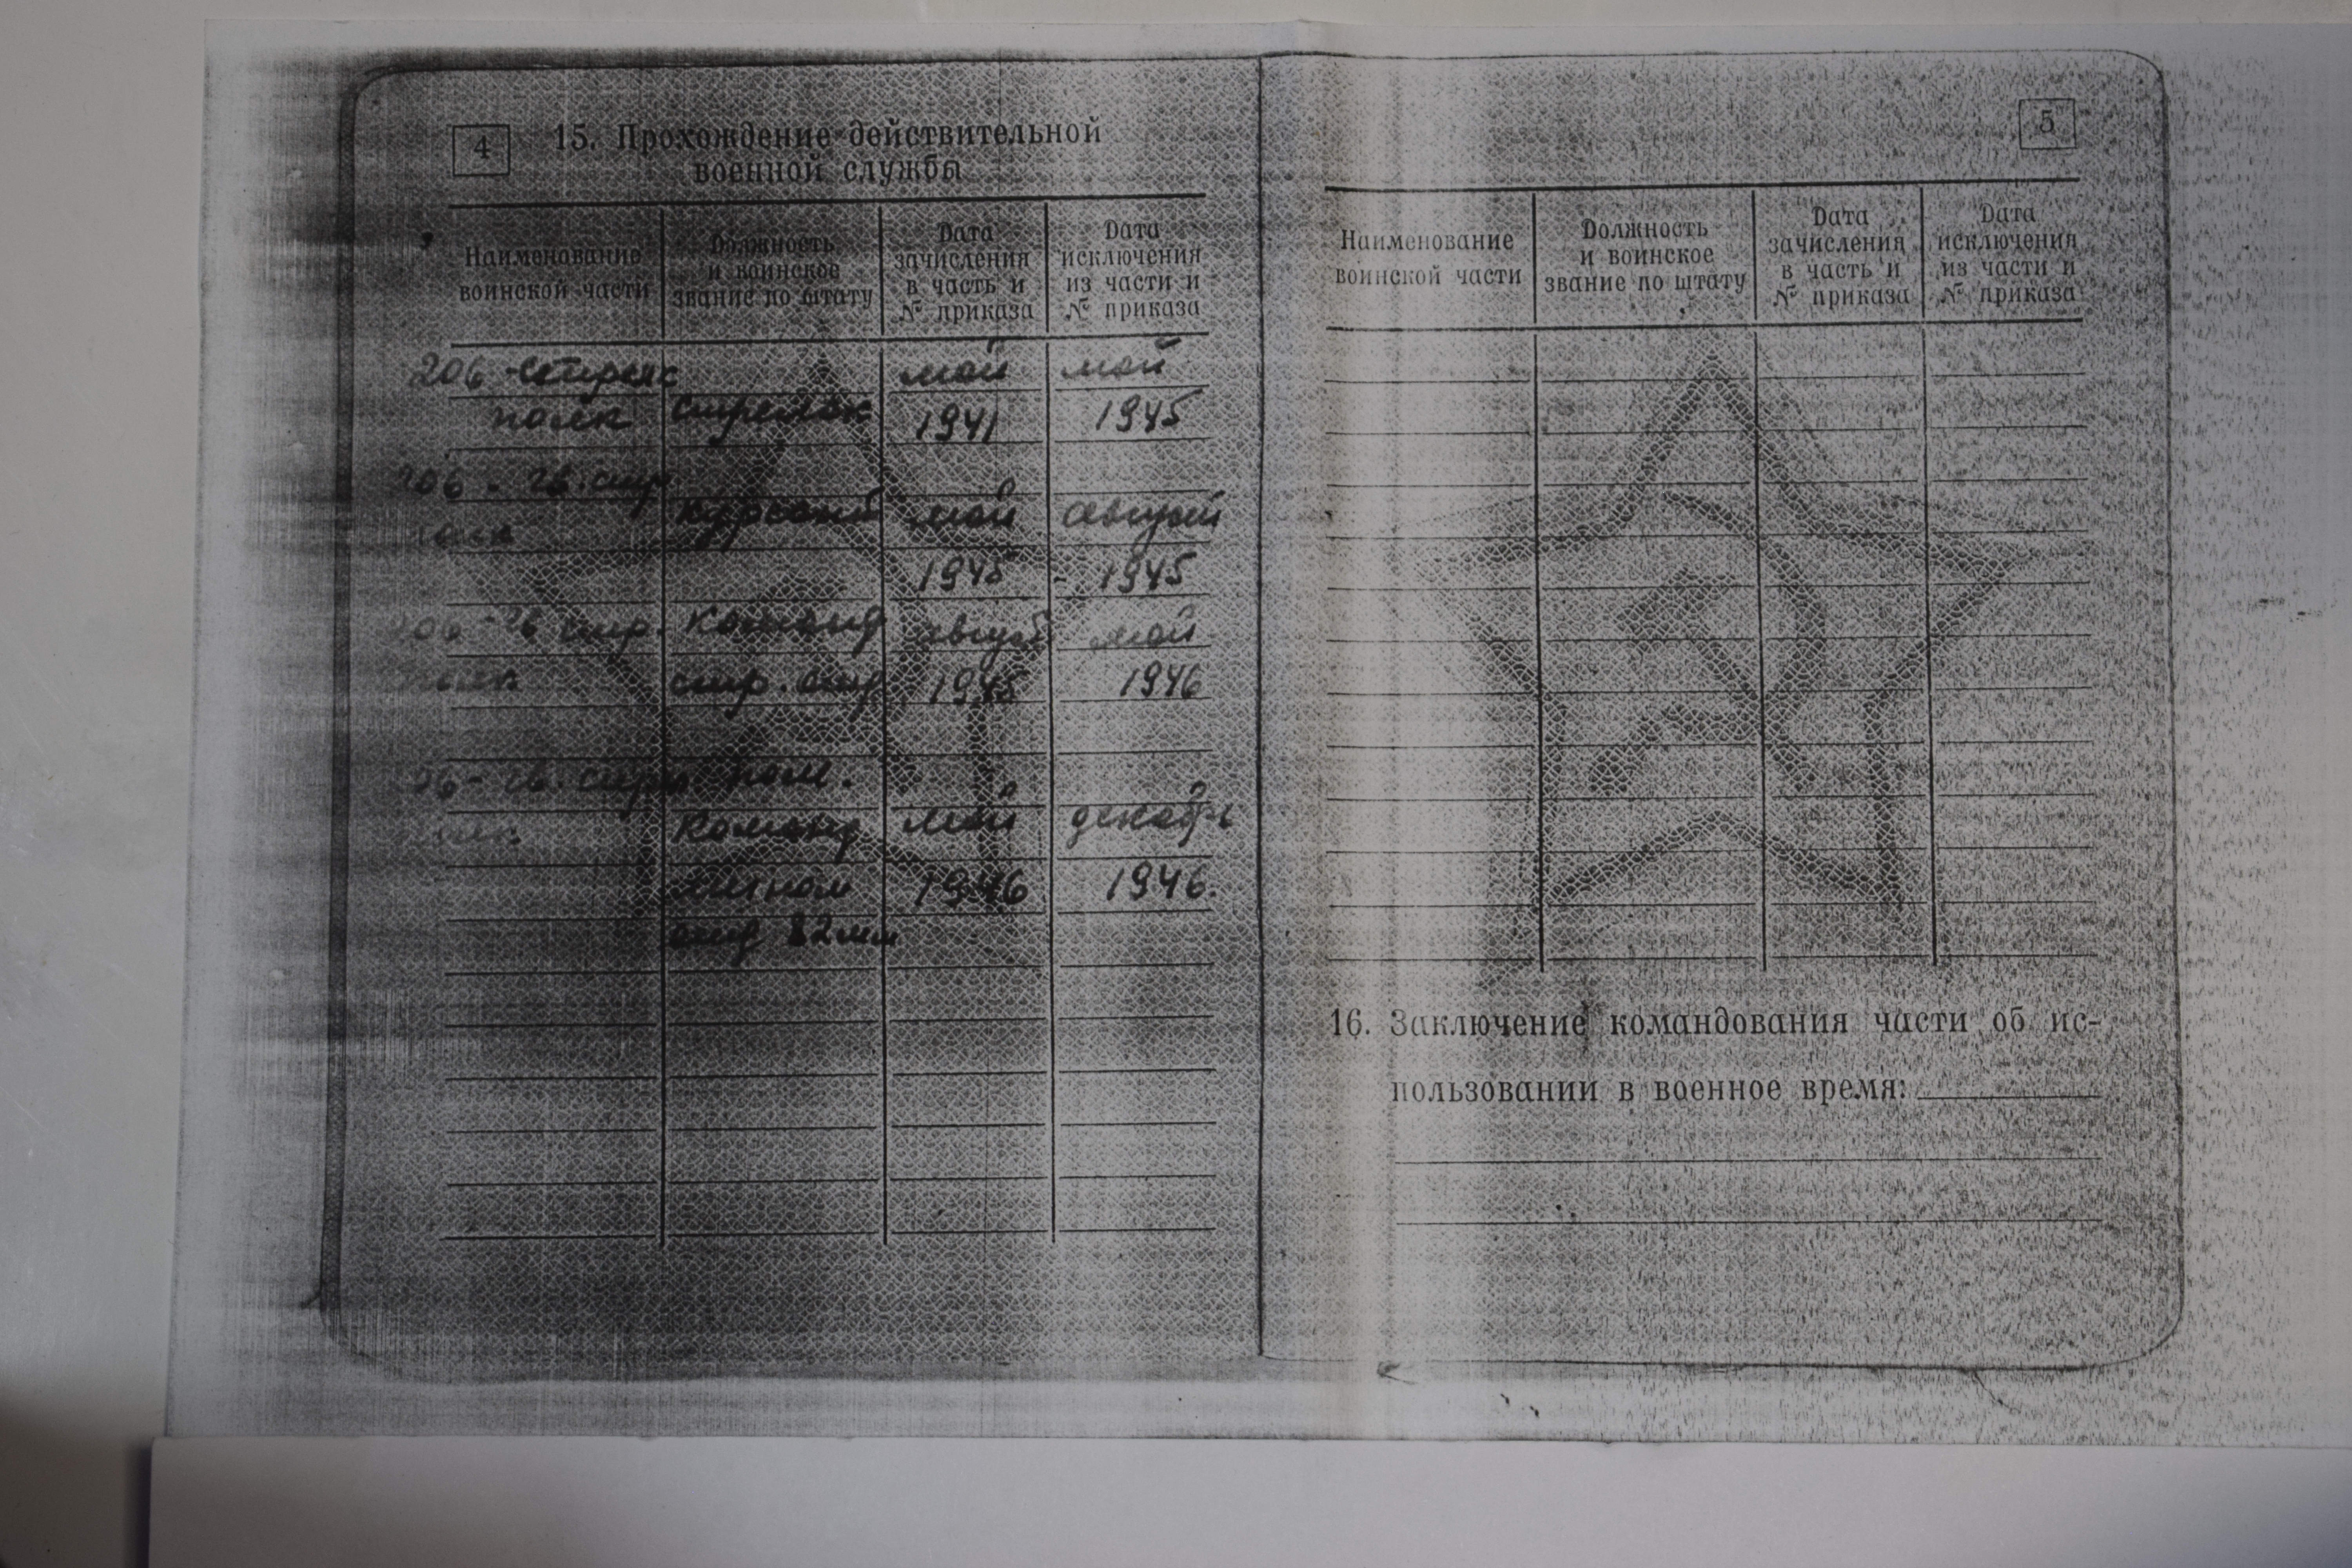 4
15. Прохождение действительной
военной службы
Наименование
воинской части
Должность
и воинское
звание по штату
Дата
зачисления
в часть и
№ приказа
Дата
исключения
из части и
№ приказа
206 - стрелк май май
полк стрелок 1941 1945
206 - гв. стр.
полк курсант май август
1945 - 1945
206 - гв стр. Команд август май
полк стр. отд 1945 1946
06 - гв. стр. пом.
полк Команд май декабрь
мином 1946 1946.
отд 82 мм
5
Наименование
воинской части
Должность
и воинское
звание по штату
Дата
зачисления
в часть и
№ приказа
Дата
исключения
из части и
№ приказа
16. Заключение командования части об ис-
пользовании в военное время: